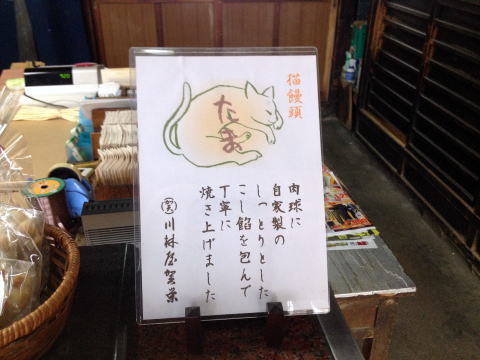 猫饅頭
たま
肉球に
自家製の
しっとりとした
こし餡を包んで
丁寧に
焼き上げました
川林屋賀栄